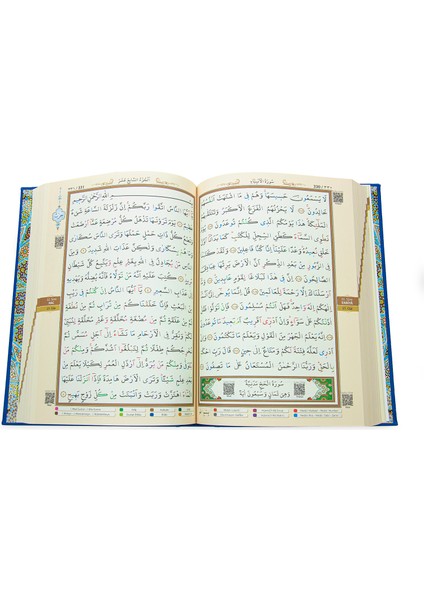 سُورَةُ الْأَنْبِيَاءِ
330
لَا يَسْمَعُونَ حَسِيسَهَا وَهُمْ فِي مَا اشْتَهَتْ أَنْفُسُهُمْ
خَالِدُونَ لَا يَحْزُنُهُمُ الْفَزَعُ الْأَكْبَرُ وَتَتَلَقّٰيهُمُ
الْمَلٰئِكَةُ هٰذَا يَوْمُكُمُ الَّذِي كُنْتُمْ تُوعَدُونَ يَوْمَ
نَطْوِي السَّمَاءَ كَطَيِّ السِّجِلِّ لِلْكُتُبِ كَمَا بَدَأْنَا أَوَّلَ
خَلْقٍ نُعِيدُهُ وَعْدًا عَلَيْنَا إِنَّا كُنَّا فَاعِلِينَ وَلَقَدْ كَتَبْنَا
فِي الزَّبُورِ مِنْ بَعْدِ الذِّكْرِ أَنَّ الْأَرْضَ يَرِثُهَا عِبَادِيَ
الصَّالِحُونَ إِنَّ فِي هٰذَا لَبَلَاغًا لِقَوْمٍ عَابِدِينَ وَمَا
أَرْسَلْنَاكَ إِلَّا رَحْمَةً لِلْعَالَمِينَ قُلْ إِنَّمَا يُوحٰى إِلَيَّ أَنَّمَا
إِلٰهُكُمْ إِلٰهٌ وَاحِدٌ فَهَلْ أَنْتُمْ مُسْلِمُونَ فَإِنْ تَوَلَّوْا فَقُلْ
اٰذَنْتُكُمْ عَلٰى سَوَاءٍ وَإِنْ أَدْرِي أَقَرِيبٌ أَمْ بَعِيدٌ مَا تُوعَدُونَ
إِنَّهُ يَعْلَمُ الْجَهْرَ مِنَ الْقَوْلِ وَيَعْلَمُ مَا تَكْتُمُونَ وَإِنْ
أَدْرِي لَعَلَّهُ فِتْنَةٌ لَكُمْ وَمَتَاعٌ إِلٰى حِينٍ قَالَ رَبِّ احْكُمْ
بِالْحَقِّ وَرَبُّنَا الرَّحْمٰنُ الْمُسْتَعَانُ عَلٰى مَا تَصِفُونَ
سُورَةُ الْحَجِّ مَدَنِيَّةٌ
وَهِيَ ثَمَانٍ وَسَبْعُونَ اٰيَةً
اَلْجُزْءُ السَّابِعَ عَشَرَ
331
بِسْمِ اللّٰهِ الرَّحْمٰنِ الرَّحِيمِ
يَا أَيُّهَا النَّاسُ اتَّقُوا رَبَّكُمْ إِنَّ زَلْزَلَةَ السَّاعَةِ شَيْءٌ
عَظِيمٌ يَوْمَ تَرَوْنَهَا تَذْهَلُ كُلُّ مُرْضِعَةٍ عَمَّا أَرْضَعَتْ
وَتَضَعُ كُلُّ ذَاتِ حَمْلٍ حَمْلَهَا وَتَرَى النَّاسَ سُكَارٰى
وَمَا هُمْ بِسُكَارٰى وَلٰكِنَّ عَذَابَ اللّٰهِ شَدِيدٌ وَمِنَ
النَّاسِ مَنْ يُجَادِلُ فِي اللّٰهِ بِغَيْرِ عِلْمٍ وَيَتَّبِعُ كُلَّ شَيْطَانٍ
مَرِيدٍ كُتِبَ عَلَيْهِ أَنَّهُ مَنْ تَوَلَّاهُ فَأَنَّهُ يُضِلُّهُ وَيَهْدِيهِ
إِلٰى عَذَابِ السَّعِيرِ يَا أَيُّهَا النَّاسُ إِنْ كُنْتُمْ فِي رَيْبٍ
مِنَ الْبَعْثِ فَإِنَّا خَلَقْنَاكُمْ مِنْ تُرَابٍ ثُمَّ مِنْ نُطْفَةٍ ثُمَّ
مِنْ عَلَقَةٍ ثُمَّ مِنْ مُضْغَةٍ مُخَلَّقَةٍ وَغَيْرِ مُخَلَّقَةٍ لِنُبَيِّنَ
لَكُمْ وَنُقِرُّ فِي الْأَرْحَامِ مَا نَشَاءُ إِلٰى أَجَلٍ مُسَمًّى
ثُمَّ نُخْرِجُكُمْ طِفْلًا ثُمَّ لِتَبْلُغُوا أَشُدَّكُمْ وَمِنْكُمْ مَنْ
يُتَوَفّٰى وَمِنْكُمْ مَنْ يُرَدُّ إِلٰى أَرْذَلِ الْعُمُرِ لِكَيْلَا يَعْلَمَ مِنْ
بَعْدِ عِلْمٍ شَيْئًا وَتَرَى الْأَرْضَ هَامِدَةً فَإِذَا أَنْزَلْنَا عَلَيْهَا
الْمَاءَ اهْتَزَّتْ وَرَبَتْ وَأَنْبَتَتْ مِنْ كُلِّ زَوْجٍ بَهِيجٍ